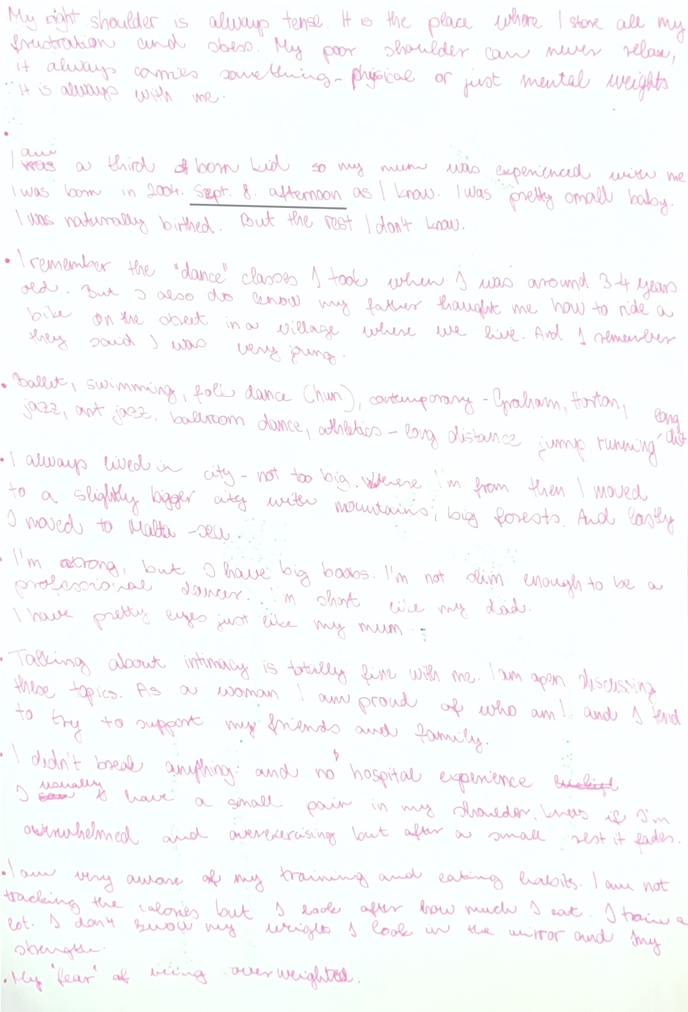 My right shoulder is always tense. It is the place where I store all my
frustration and stress. My poor shoulder can never relax,
it always carries something - physical or just mental weights
it is always with me.
•
I am a third born kid so my mum was experienced with me
I was born in 2004. Sept. 8. afternoon as I know. I was pretty small baby.
I was naturally birthed. But the rest I don't know.
• I remember the "dance" classes I took when I was around 3-4 years
old. But I also do know my father thaught me how to ride a
bike on the street in a village where we live. And I remember
they said I was very young.
• Ballet, swimming, folk dance (hun), contemporary - Graham, Horton, long
jazz, art jazz, ballroom dance, athletics - long distance jump running
• I always lived in city - not too big. Where I'm from then I moved
to a slightly bigger city with mountains, big forests. And lastly
I moved to Malta - sea.
• I'm strong, but I have big boobs. I'm not slim enough to be a
professional dancer. I'm short like my dad.
I have pretty eyes just like my mum.
• Talking about intimacy is totally fine with me. I am open discussing
these topics. As a woman I am proud of who am I and I tend
to try to support my friends and family.
• I didn't break anything and no hospital experience
I usually have a small pain in my shoulder, knees if I'm
overwhelmed and overexercising but after a small rest it fades.
• I am very aware of my training and eating habits. I am not
tracking the calories but I look after how much I eat. I train a
lot. I don't know my weight I look in the mirror and my
strength.
• My "fear" of being overweighted.